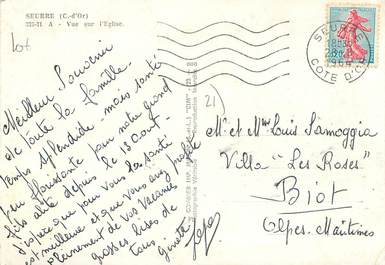 SEURRE (C.-d'Or)
225-21 A - Vue sur l'Eglise.
Lot
Meilleur Souvenir
de toute la famille.
Temps splendide mais santé
peu florissante pour notre grand
fils alité depuis le 15 Août
J'espère que pour vous la santé
est meilleure et que vous avez profité
pleinement de vos vacances
grosses bises de
tous
Ginette
21)
SEURRE
18H30
1964
COTE D'OR
M. et Mme Louis Samoggia
Villa "Les Roses"
Biot
Alpes-Maritimes